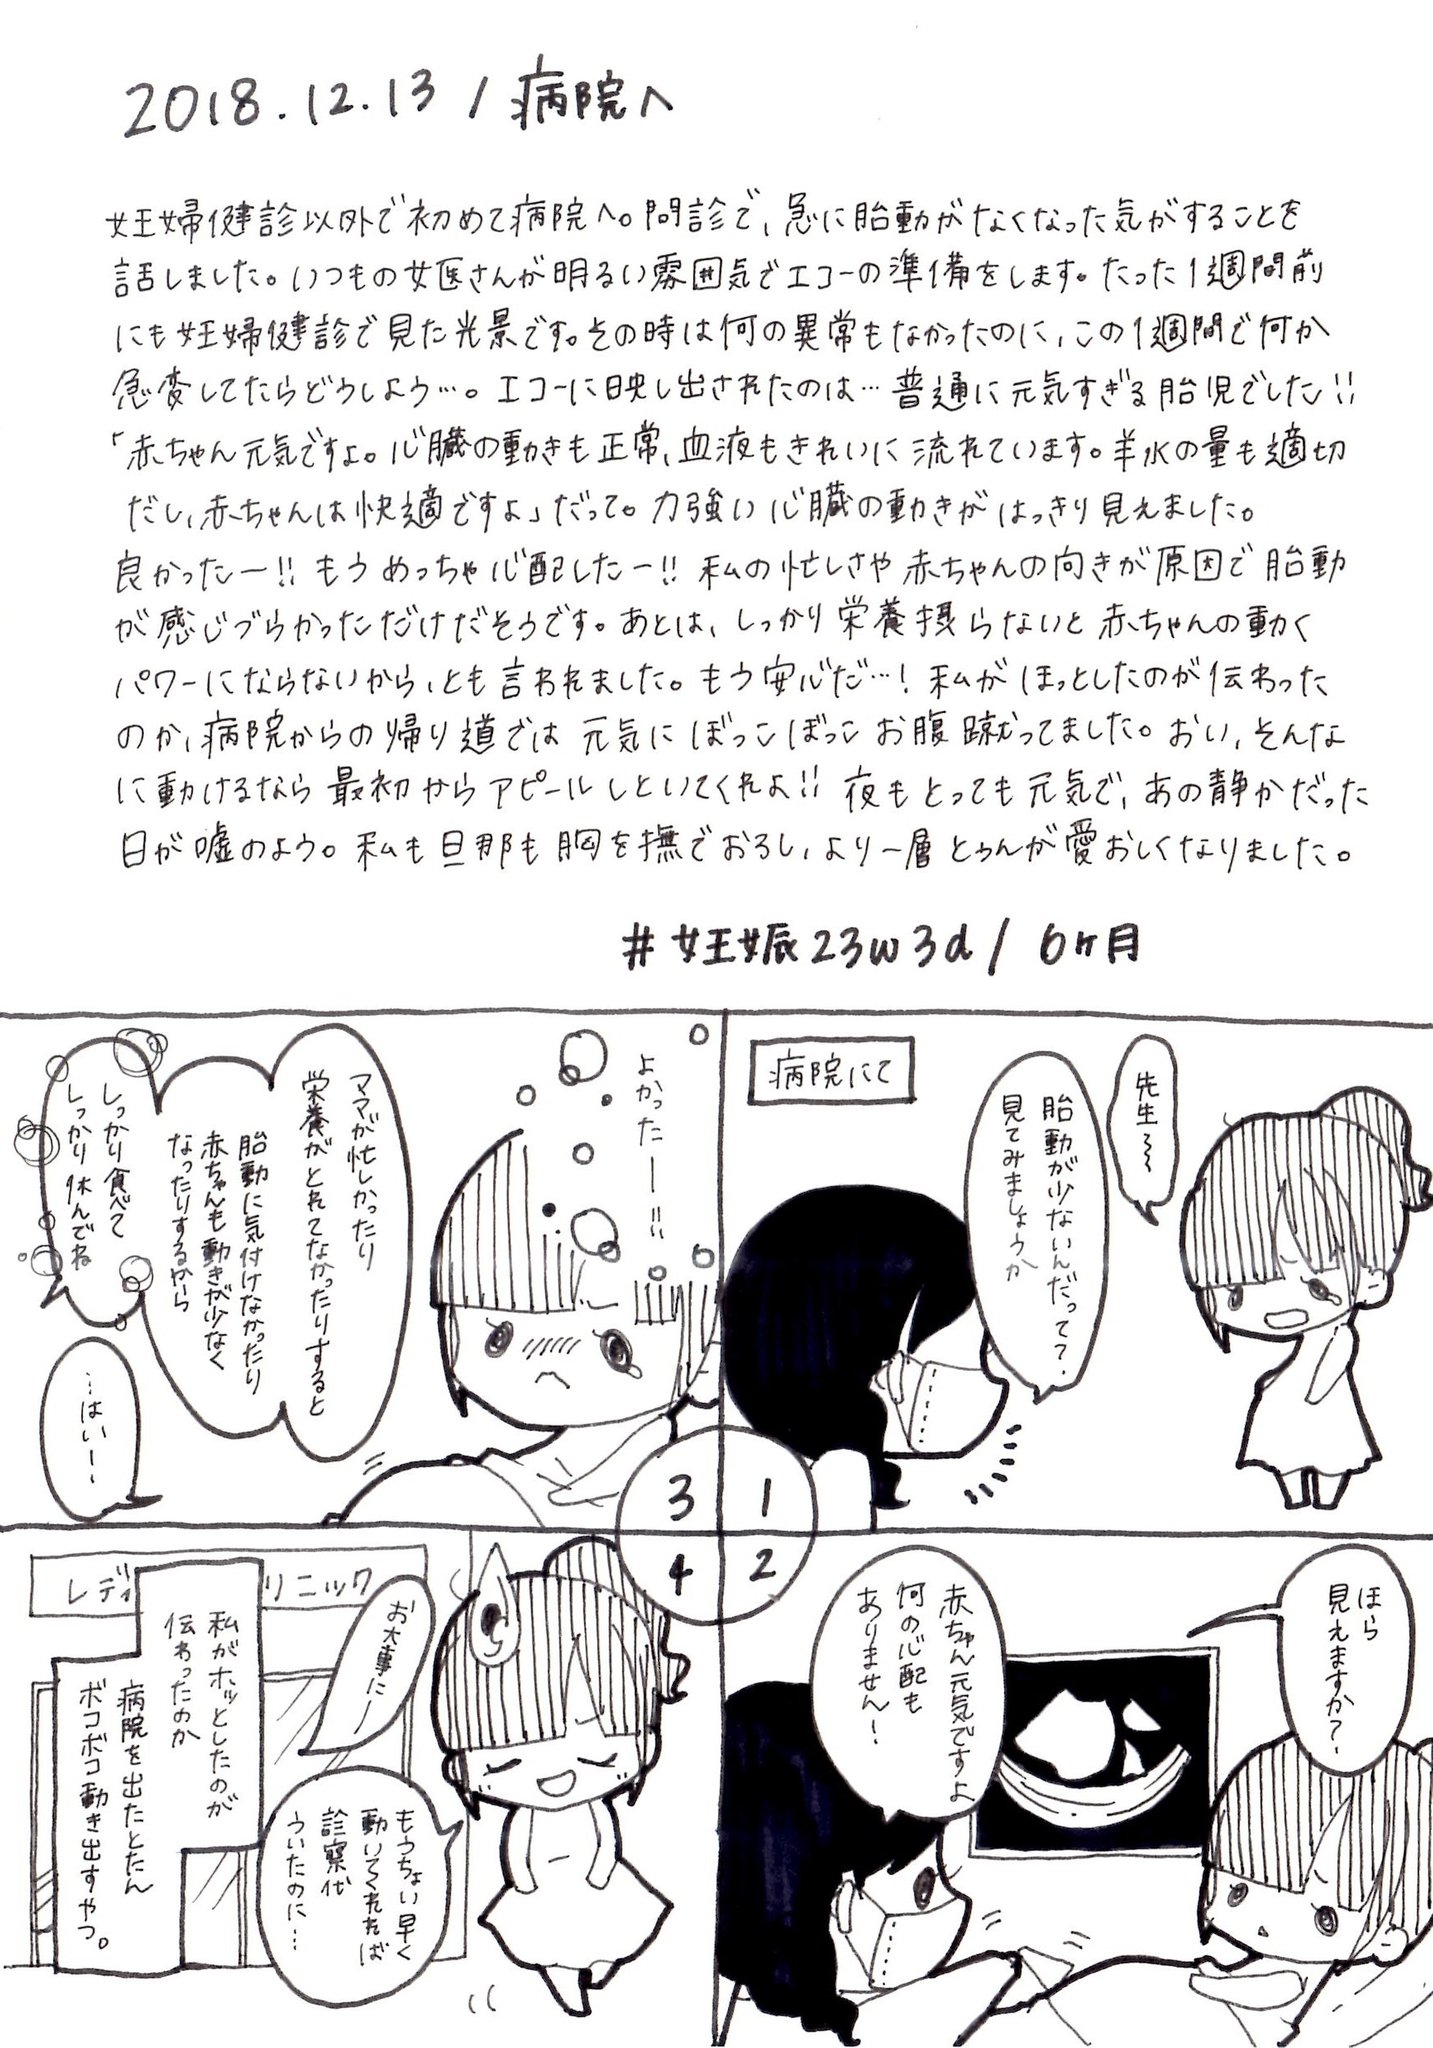 2018.12.13/病院へ
妊婦健診以外で初めて病院へ。問診で、急に胎動がなくなった気がすることを
話しました。いつもの女医さんが明るい雰囲気でエコーの準備をします。たった1週間前
にも妊婦健診で見た光景です。その時は何の異常もなかったのに、この1週間で何か
急変してたらどうしよう…。エコーに映し出されたのは…普通に元気すぎる胎児でした!!
「赤ちゃん元気ですよ。心臓の動きも正常、血液もきれいに流れています。羊水の量も適切
だし、赤ちゃんは快適ですよ」だって。力強い心臓の動きがはっきり見えました。
良かったー!!もうめっちゃ心配したー!!私の忙しさや赤ちゃんの向きが原因で胎動
が感じづらかっただけだそうです。あとは、しっかり栄養摂らないと赤ちゃんの動く
パワーにならないから、とも言われました。もう安心だ…!私がほっとしたのが伝わった
のか、病院からの帰り道では元気にぼっこぼっこお腹蹴ってました。おい、そんな
に動けるなら最初からアピールしといてくれよ!!夜もとっても元気で、あの静かだった
日が嘘のよう。私も旦那も胸を撫でおろし、より一層とぅんが愛おしくなりました。
#妊娠23w3d/6ヶ月
病院にて
先生〜〜
胎動が少ないんだって?
見てみましょうか
1
ほら
見えますか?
赤ちゃん元気ですよ
何の心配も
ありません!
2
よかったーー!!
ママが忙しかったり
栄養がとれてなかったりすると
胎動に気付けなかったり
赤ちゃんも動きが少なく
なったりするから
しっかり食べて
しっかり休んでね
…はいー
3
4
レディ
リニック
お大事にー
私がホッとしたのが
伝わったのか
病院を出たとたん
ボコボコ動き出すやつ。
もうちょい早く
動いてくれたば
診察代
ういたのに…